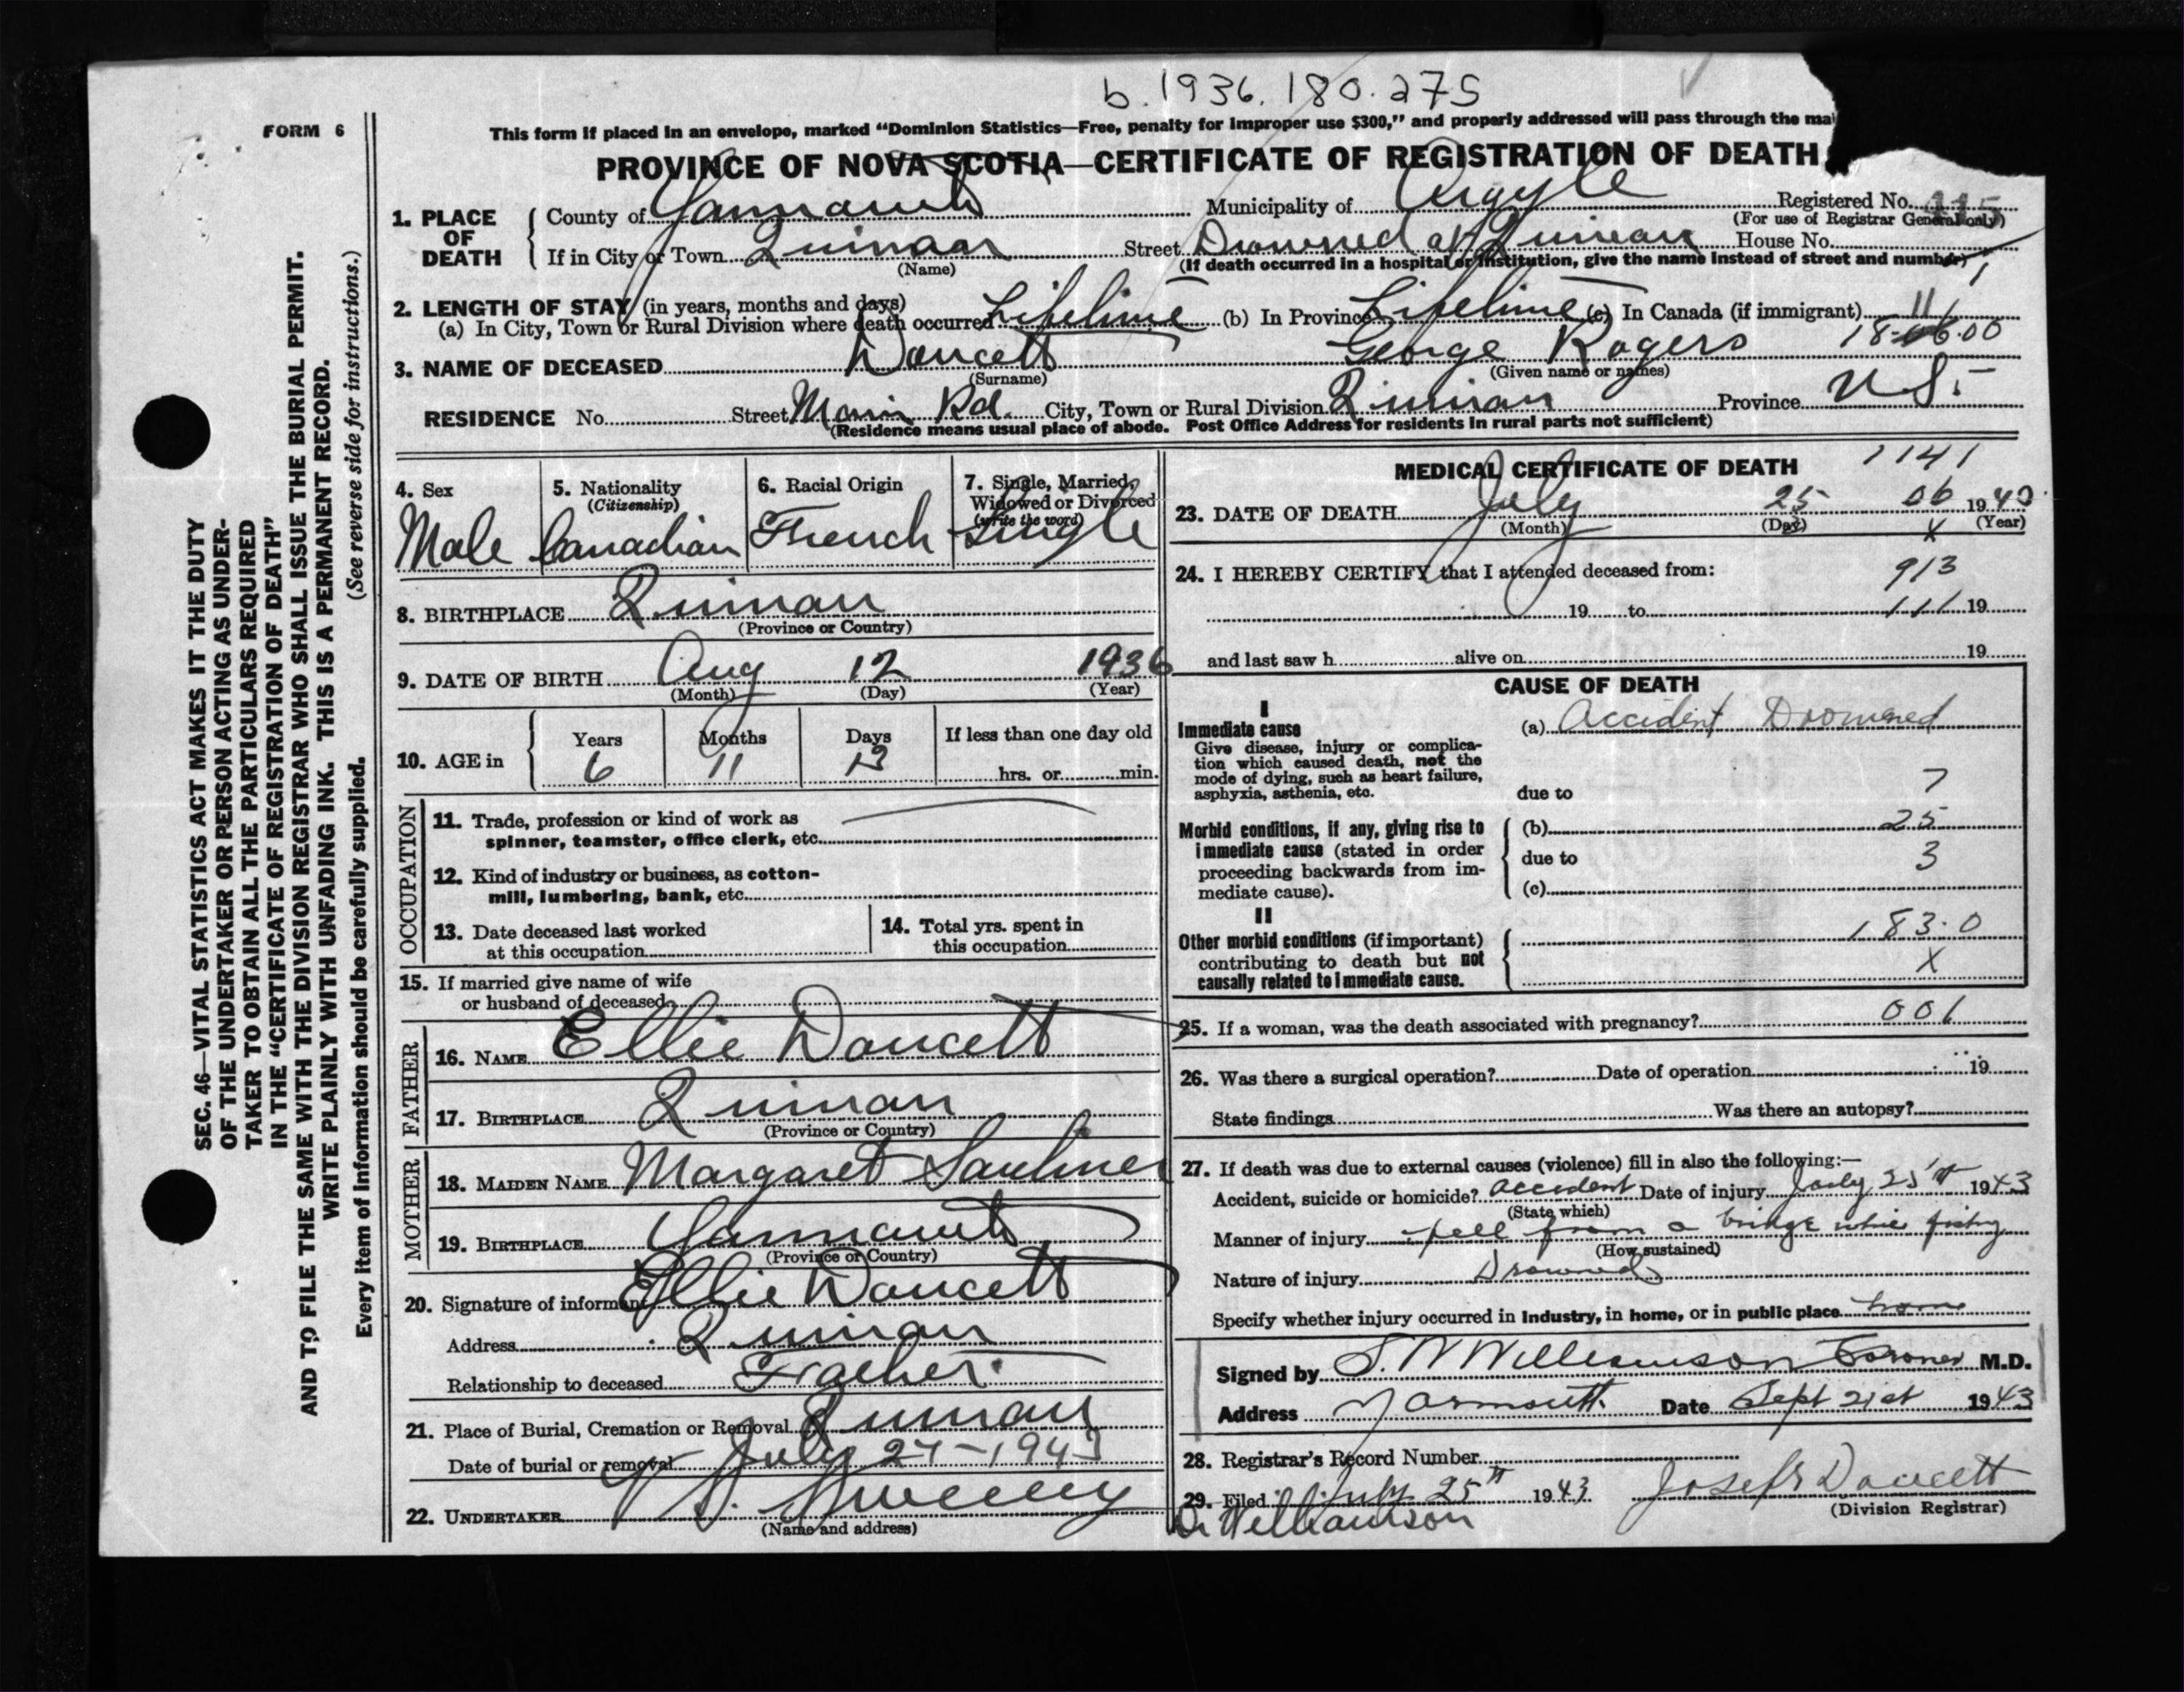 b.1936.180.275
FORM 6
This form if placed in an envelope, marked "Dominion Statistics—Free, penalty for improper use $300," and properly addressed will pass through the mai
PROVINCE OF NOVA SCOTIA—CERTIFICATE OF REGISTRATION OF DEATH
1. PLACE OF DEATH
County of Yarmouth Municipality of Argyle Registered No. 115
(For use of Registrar General only)
If in City or Town Quinan Street Drowned at Quinan House No.
(Name) (If death occurred in a hospital or institution, give the name instead of street and number)
2. LENGTH OF STAY (in years, months and days)
(a) In City, Town or Rural Division where death occurred Lifetime (b) In Province Lifetime (c) In Canada (if immigrant) 11
3. NAME OF DECEASED Doucett George Rogers
(Surname) (Given name or names)
RESIDENCE No. Street Main Rd. City, Town or Rural Division Quinan Province N.S.
(Residence means usual place of abode. Post Office Address for residents in rural parts not sufficient)
4. Sex Male
5. Nationality (Citizenship) Canadian
6. Racial Origin French
7. Single, Married, Widowed or Divorced (write the word) Single
8. BIRTHPLACE Quinan
(Province or Country)
9. DATE OF BIRTH Aug 12 1936
(Month) (Day) (Year)
10. AGE in Years 6 Months 11 Days 13 If less than one day old
hrs. or min.
OCCUPATION
11. Trade, profession or kind of work as
spinner, teamster, office clerk, etc.
12. Kind of industry or business, as cotton-
mill, lumbering, bank, etc.
13. Date deceased last worked
at this occupation
14. Total yrs. spent in
this occupation
15. If married give name of wife
or husband of deceased
FATHER
16. NAME Ellie Doucett
17. BIRTHPLACE Quinan
(Province or Country)
MOTHER
18. MAIDEN NAME Margaret Saulnier
19. BIRTHPLACE Yarmouth
(Province or Country)
20. Signature of informant Ellie Doucett
Address Quinan
Relationship to deceased Father.
21. Place of Burial, Cremation or Removal Quinan
Date of burial or removal July 27-1943
22. UNDERTAKER V. S. Sweeney
(Name and address)
MEDICAL CERTIFICATE OF DEATH 1141
23. DATE OF DEATH July 25 06 1943
(Month) (Day) (Year)
X
24. I HEREBY CERTIFY that I attended deceased from: 913
19 to 111 19
and last saw h alive on 19
CAUSE OF DEATH
I
Immediate cause (a) Accident Drowned
Give disease, injury or complica-
tion which caused death, not the
mode of dying, such as heart failure,
asphyxia, asthenia, etc. due to 7
Morbid conditions, if any, giving rise to (b) 25
immediate cause (stated in order due to 3
proceeding backwards from im-
mediate cause). (c)
II
Other morbid conditions (if important) 183.0
contributing to death but not X
causally related to immediate cause.
25. If a woman, was the death associated with pregnancy? 001
26. Was there a surgical operation? Date of operation 19
State findings Was there an autopsy?
27. If death was due to external causes (violence) fill in also the following:—
Accident, suicide or homicide? accident Date of injury July 25th 1943
(State which)
Manner of injury fell from a bridge while fishing
(How sustained)
Nature of injury Drowned
Specify whether injury occurred in industry, in home, or in public place home
Signed by S. W Williamson Coroner M.D.
Address Yarmouth. Date Sept 21st 1943
28. Registrar's Record Number
29. Filed July 25th 1943 Joseph Doucett
(Division Registrar)
Dr Williamson
SEC. 46—VITAL STATISTICS ACT MAKES IT THE DUTY
OF THE UNDERTAKER OR PERSON ACTING AS UNDER-
TAKER TO OBTAIN ALL THE PARTICULARS REQUIRED
IN THE "CERTIFICATE OF REGISTRATION OF DEATH"
AND TO FILE THE SAME WITH THE DIVISION REGISTRAR WHO SHALL ISSUE THE BURIAL PERMIT.
WRITE PLAINLY WITH UNFADING INK. THIS IS A PERMANENT RECORD.
(See reverse side for instructions.)
Every item of information should be carefully supplied.